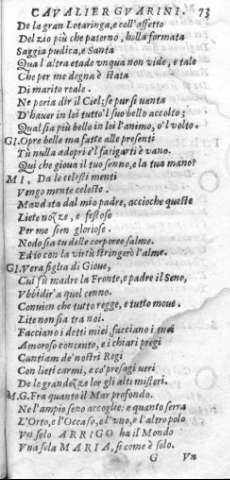 CAVALIER GVARINI. 73
De la gran Lotaringa, e coll'affetto
Del zio più che paterno, hulla formata
Saggia pudica, e Santa
Qual altra etade vnqua non vide, e tale
Che per me degna è stata
Di marito reale.
Ne poria dir il Ciel; se pur si vanta
D'hauer in lei tutto'l suo bello accolto;
Qual sia più bello in lei l'animo, o'l volto.
GI. Opre belle ma fatte alle presenti
Tù nulla adopri e'l farigarti è vano.
Qui che gioua il tuo senno, e la tua mano?
MI. Da le celesti menti
Vengo mente celeste.
Mandata dal mio padre, accioche queste
Liete nozze, e festose
Per me sien gloriose.
Nodo sia tu delle corporee salme.
Ed io con la virtù stringerò l'alme.
GI. Vera figlia di Gioue,
Cui fù madre la Fronte, e padre il Seno,
Vbbidir' a quel cenno.
Conuien che tutto regge, e tutto moue.
Lite non sia tra noi.
Facciano i detti miei, facciano i suoi
Amoroso concento, e i chiari pregi
Cantiam de'nostri Regi
Con lieti carmi, e co'presagi ueri
De le grandezze lor gli alti misteri.
M.G. Fra quanto il Mar profondo.
Ne l'ampio seno accoglie: e quanto serra
L'Orto, e l'Occaso, e l'vno, e l'altro polo
Vn solo ARRIGO ha il Mondo
Vna sola MARIA, si come è solo.
G Vn